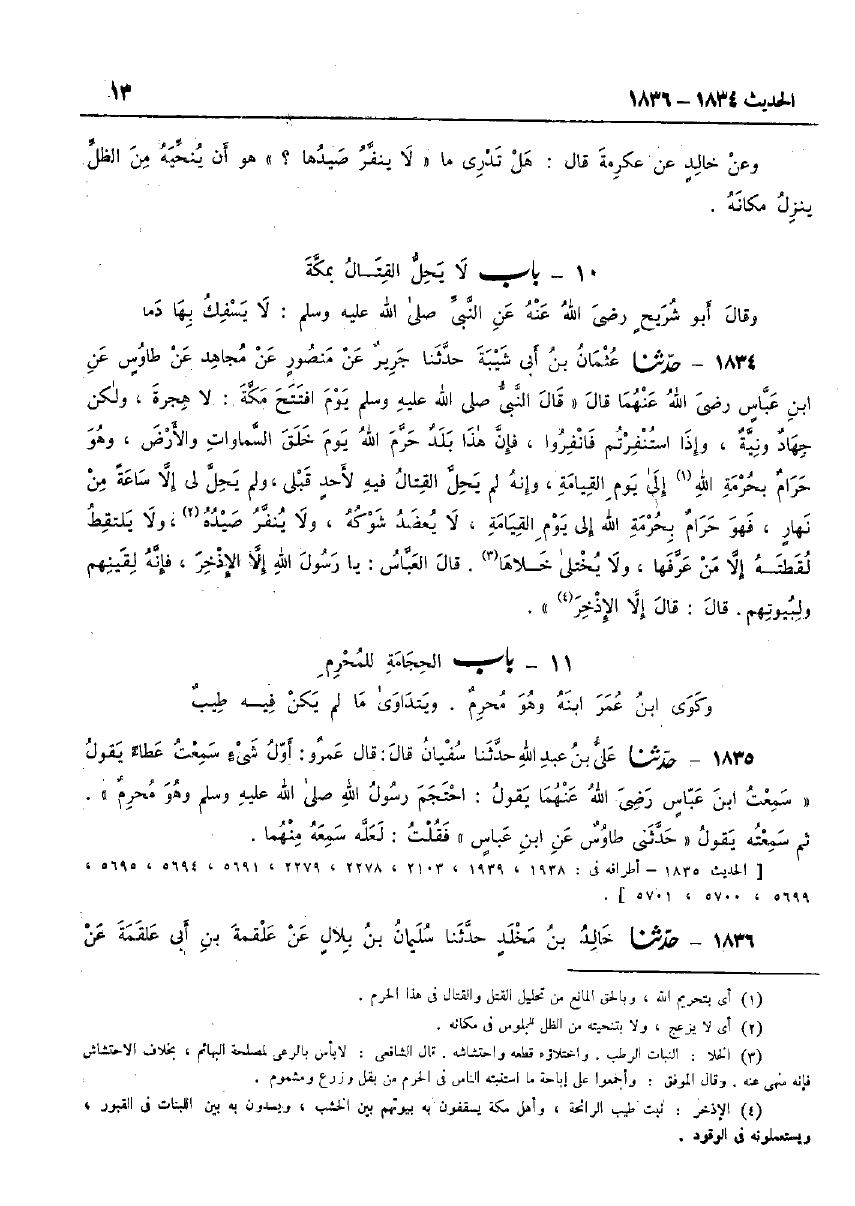 الحديث ١٨٣٤ – ١٨٣٦
١٣
وعنْ خالِدٍ عن عكرِمةَ قال : هَلْ تَدْرِى ما « لَا ينفَّرُ صَيدُها ؟ » هو أَن يُنَحِّيَهُ مِنَ الظلِّ
ينزِلُ مكانَهُ .
١٠ – باب لَا يَحِلُّ القِتَالُ بمكَّةَ
وقالَ أَبو شُرَيحٍ رضىَ اللهُ عَنْهُ عَنِ النَّبىِّ صلىٰ الله عليه وسلم : لَا يَسْفِكُ بِهَا دَما
١٨٣٤ – حدّثنا عُثْمَانُ بنُ أَبى شَيْبَةَ حدَّثَنا جَرِيرٌ عَنْ مَنصُورٍ عَنْ مُجاهِدٍ عَنْ طاوُسٍ عَنِ
ابنِ عَبَّاسٍ رضىَ اللهُ عَنْهُمَا قالَ « قَالَ النَّبىُّ صلى الله عليهِ وسلم يَوْمَ افتَتَحَ مَكَّةَ : لا هِجرةَ ، ولٰكن
جِهَادٌ ونِيَّةٌ ، وإِذَا استُنْفِرْتُم فَانْفِرُوا ، فإِنَّ هٰذا بَلَدٌ حَرَّمَ اللهُ يَومَ خَلَقَ السَّماواتِ والأَرْضَ ، وهُوَ
حَرَامٌ بحُرْمَةِ اللهِ(١) إِلَىٰ يَومِ القِيامَةِ ، وإِنهُ لم يَحِلَّ القِتالُ فيهِ لأَحدٍ قَبْلى ، ولم يَحِلَّ لى إِلَّا سَاعَةً مِنْ
نَهارٍ ، فهوَ حَرَامٌ بِحُرْمَةِ الله إِلى يَوْمِ القِيَامَةِ ، لَا يُعضَدُ شَوْكُهُ ، ولَا يُنفَّرُ صَيْدُهُ(٢) ، ولَا يَلتقِطُ
لُقَطتَـهُ إِلَّا مَنْ عَرَّفَها ، ولَا يُختلىٰ خَـلاهَا(٣) . قالَ العَبَّاسُ : يا رَسُولَ اللهِ إِلَّا الإِذْخِرَ ، فإِنَّهُ لِقَينِهِم
ولِبُيوتِهِم . قالَ : قالَ إِلَّا الإِذْخِرَ(٤) » .
١١ – باب الحِجَامَةِ للمُحْرِمِ
وكَوَى ابنُ عُمَرَ ابنَهُ وهُوَ مُحرِمٌ . ويَتدَاوَىٰ مَا لم يَكنْ فِيـهِ طِيبٌ
١٨٣٥ – حدّثنا عَلىُّ بنُ عبدِ اللهِ حدَّثَنا سُفْيانُ قالَ : قال عَمرٌو : أَوّلُ شَىْءٍ سَمِعْتُ عَطاءً يَقولُ
« سَمِعْتُ ابنَ عَبَّاسٍ رَضِىَ اللهُ عَنْهُمَا يَقولُ : احْتَجَمَ رسُولُ اللهِ صلىٰ الله عليهِ وسلم وهُوَ مُحرِمٌ » .
ثم سَمِعْتُه يَقولُ « حَدَّثَنى طاوُسٌ عَنِ ابنِ عَباسٍ » فَقُلْتُ : لَعَلَّه سَمِعَهُ مِنْهُما .
[ الحديث ١٨٣٥ – أطرافه فى : ١٩٣٨ ، ١٩٣٩ ، ٢١٠٣ ، ٢٢٧٨ ، ٢٢٧٩ ، ٥٦٩١ ، ٥٦٩٤ ، ٥٦٩٥ ،
٥٦٩٩ ، ٥٧٠٠ ، ٥٧٠١ ] .
١٨٣٦ – حدّثنا خَالِدُ بنُ مَخْلَدٍ حدَّثَنا سُلَيمانُ بنُ بِلالٍ عَنْ عَلْقمةَ بنِ أَبى عَلقَمَةَ عَنْ
(١) أى بتحريم الله ، وبالحق المانع من تحليل القتل والقتال فى هذا الحرم .
(٢) أى لا يزعج ، ولا بتنحيته من الظل للجلوس فى مكانه .
(٣) الخلا : النبات الرطب . واختلاؤه قطعه واحتشاشه . قال الشافعى : لابأس بالرعى لمصلحة البهائم ، بخلاف الاحتشاش
فإنه منهى عنه . وقال الموفق : وأجمعوا على إباحة ما استنبته الناس فى الحرم من بقل وزرع ومشموم .
(٤) الإذخر : نبت طيب الرائحة ، وأهل مكة يسقفون به بيوتهم بين الخشب ، ويسدون به بين اللبنات فى القبور ،
ويستعملونه فى الوقود .